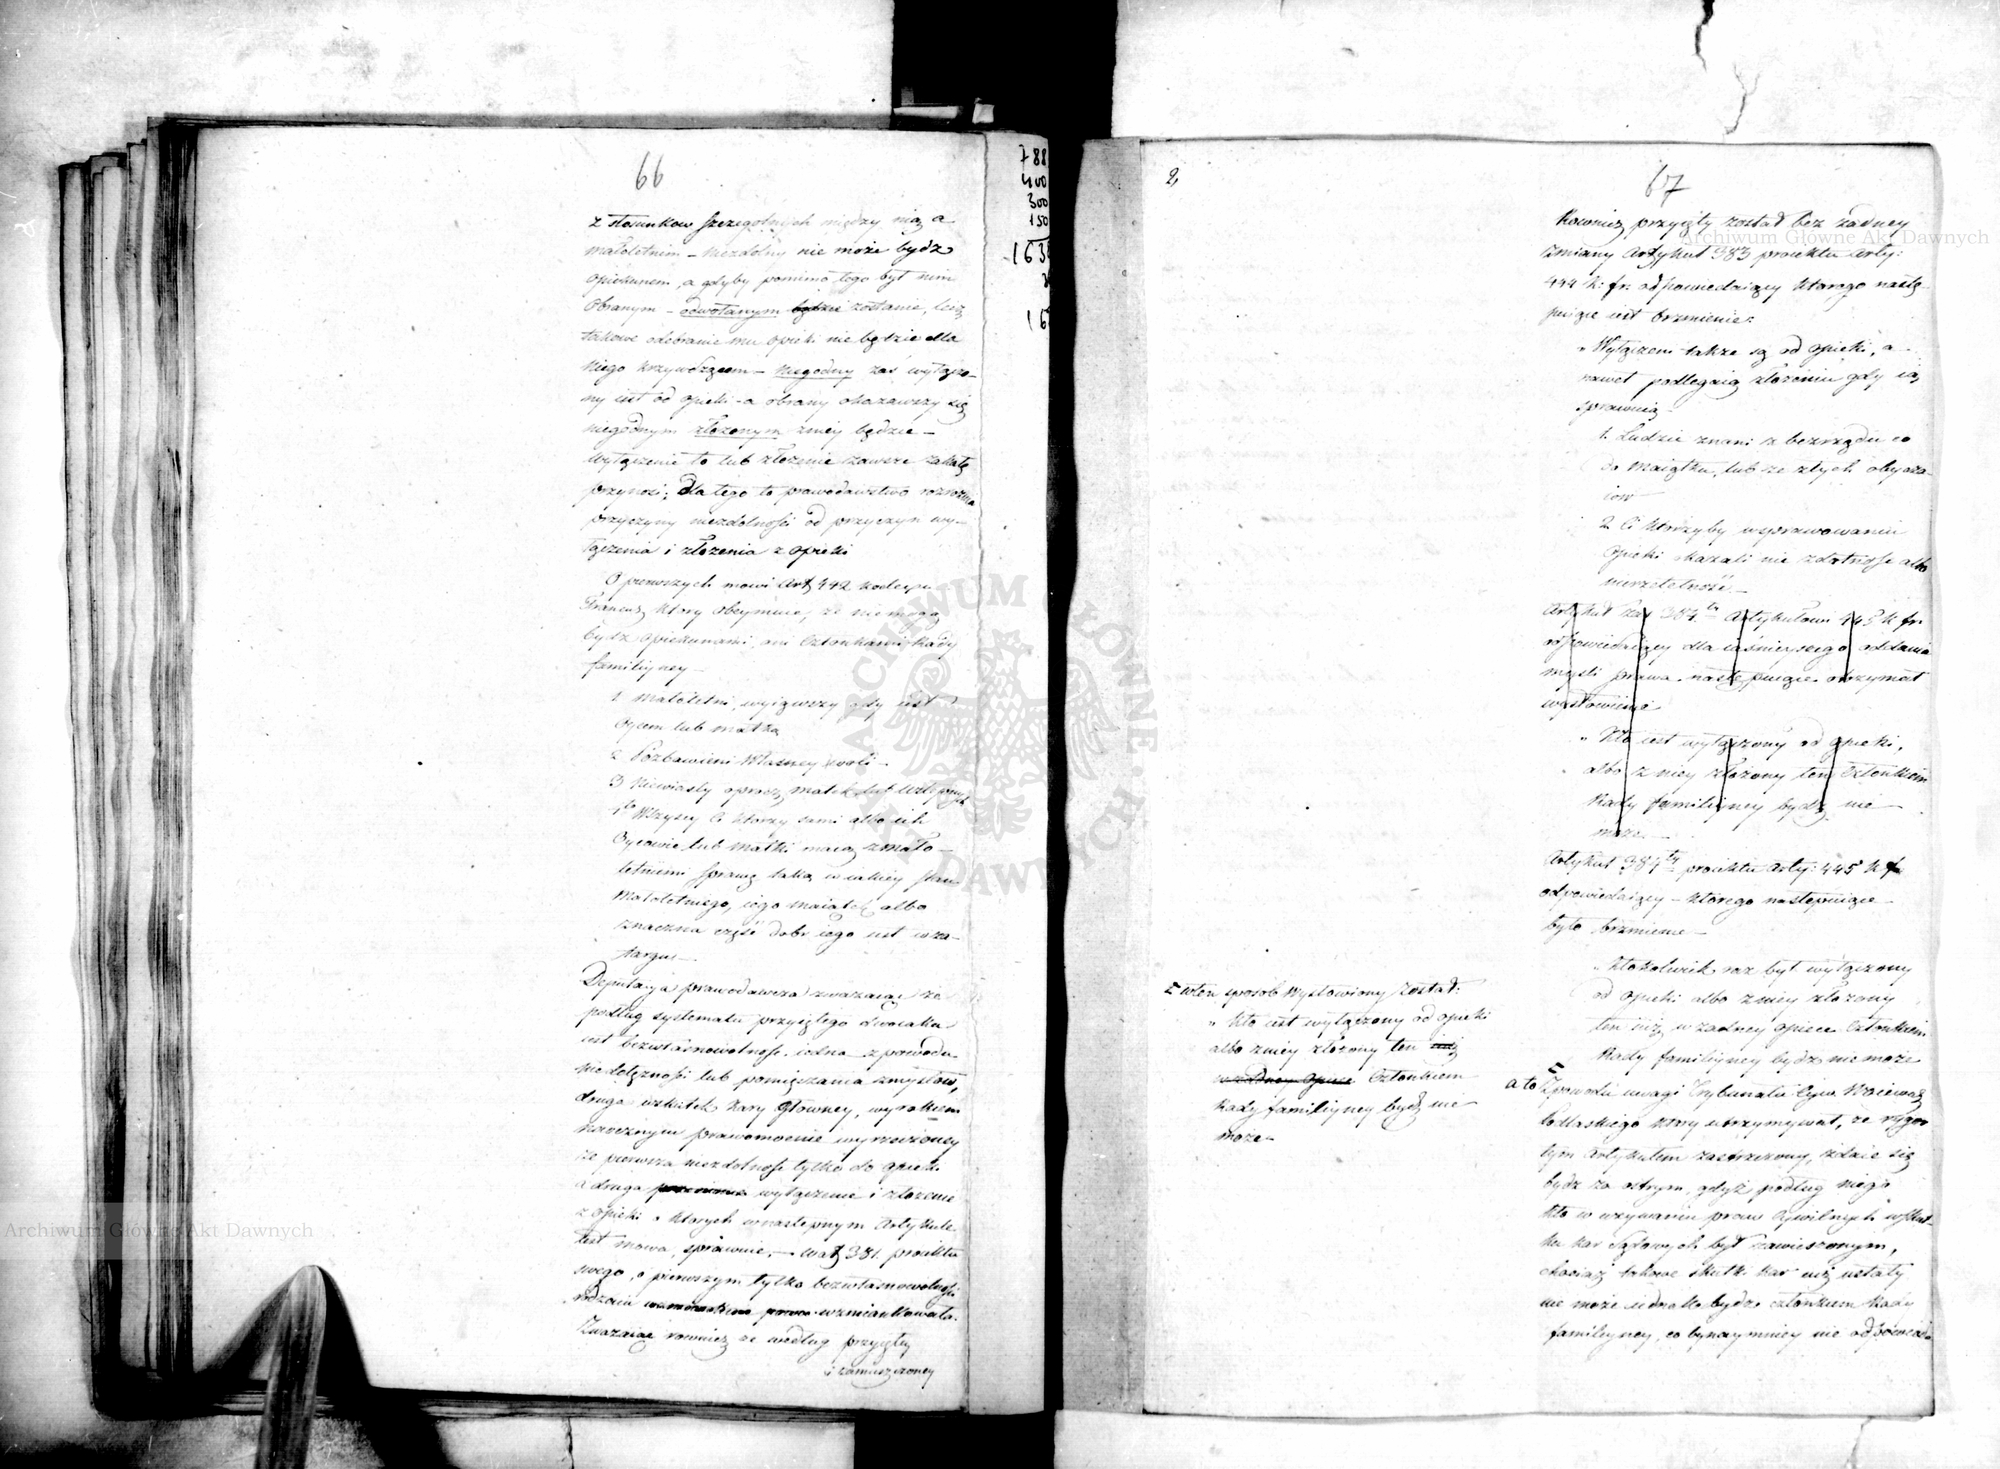 66
z stosunkow szczegolnych między nią a
małoletnim – niezdolny nie może bydź
opiekunem, a gdyby pomimo tego był nim
obranym – odwołanym będzie zostanie, lecz
takowe odebranie mu opieki nie będzie dla
niego krzywdzącem – niegodny zaś wyłączo-
ny iest od opieki – a obrany okazawszy się
niegodnym złożonym z niey będzie –
wyłączenie to lub złożenie zawsze zakałę
przynosi; dla tego to prawodawstwo rozróżnia
przyczyny niezdolności od przyczyn wy-
łączenia i złożenia z opieki
O pierwszych mowi Art 442 kodexu
Francuz ktory obeymuie, że nie mogą
bydź opiekunami, ani Członkami Rady
familiyney –
1 małoletni, wyiąwszy gdy iest
oycem lub matką
2 Pozbawieni własney woli –
3 Niewiasty oprocz matek lub wstępnych
4to Wszyscy Ci ktorzy sami albo ich
Oycowie lub matki maią z mało-
letniemi sprawę taką w iakiey stan
Małoletniego, iego maiątek albo
znaczna część dobr iego iest w za-
targu –
Deputacya prawodawcza zważaiąc że
podług systematu przyiętego dwoiaka
iest bezwłasnowolność, iedna z powodu
niedołężności lub pomięszania zmysłów,
druga w skutek kary Głowney, wyrokiem
naocznym prawomocnie wyrzeczoney
że pierwsza niezdolność tylko do opieki
a druga wyłączenie i złożenie
z opieki o ktorych w następnym Artykule
iest mowa, sprawuie, – w art 381. proiektu
swego, o pierwszym tylko bezwłasnowolności
rodzaiu wzmiankowała.
Zważaiąc rownież że według przyiętey
i zamieszczoney
788
400
300
150
163
16
2,
67
Rownież przyięty został bez żadney
zmiany Artykuł 383 proiektu Arty:
444 K: fr: odpowiedaiący ktorego nastę-
puiące iest brzmienie:
„Wyłączeni także są od opieki, a
nawet podlegaią złożeniu gdy ią
sprawuią –
1. Ludzie znani z bezrządu co
do maiątku, lub ze złych obycza-
iow
2. Ci ktorzyby w sprawowaniu
opieki okazali nie zdatność albo
nierzetelność –
Artykuł zaś 384.ty Artykułowi 445 K fr:
odpowiedaiący dla iaśnieyszego oddania
myśli prawa następuiące otrzymał
wysłowienie
„Kto iest wyłączony od opieki,
albo z niey złożony ten Członkiem
Rady familiyney bydź nie
może. –
Artykuł 384ty proiektu Arty: 445 K fr
odpowiedaiący – ktorego następuiące
było brzmienie –
„Ktokolwiek raz był wyłączony
od opieki albo z niey złożony
ten iuż w żadney opiece Członkiem
Rady familiyney bydź nie może
a to Z powodu uwagi Trybunału Cywi. Woiewodz
Podlaskiego ktory utrzymywał, że rygor
tym Artykułem zastrzeżony, zdaie się
bydź za ostrym, gdyż podług niego
kto w używaniu praw Cywilnych w skut-
ku kar Sądowych był zawieszonym,
chociaż takowe skutki kar iuż ustały
nie może iednak bydź członkiem Rady
familiyney, co bynaymniey nie odpowiada
w ten sposob wysłowiony został:
„Kto iest wyłączony od opieki
albo z niey złożony ten iuż
w żadney opiece Członkiem
Rady familiyney bydź nie
może –
Archiwum Główne Akt Dawnych
Archiwum Główne Akt Dawnych
ARCHIWUM GŁÓWNE AKT DAWNYCH